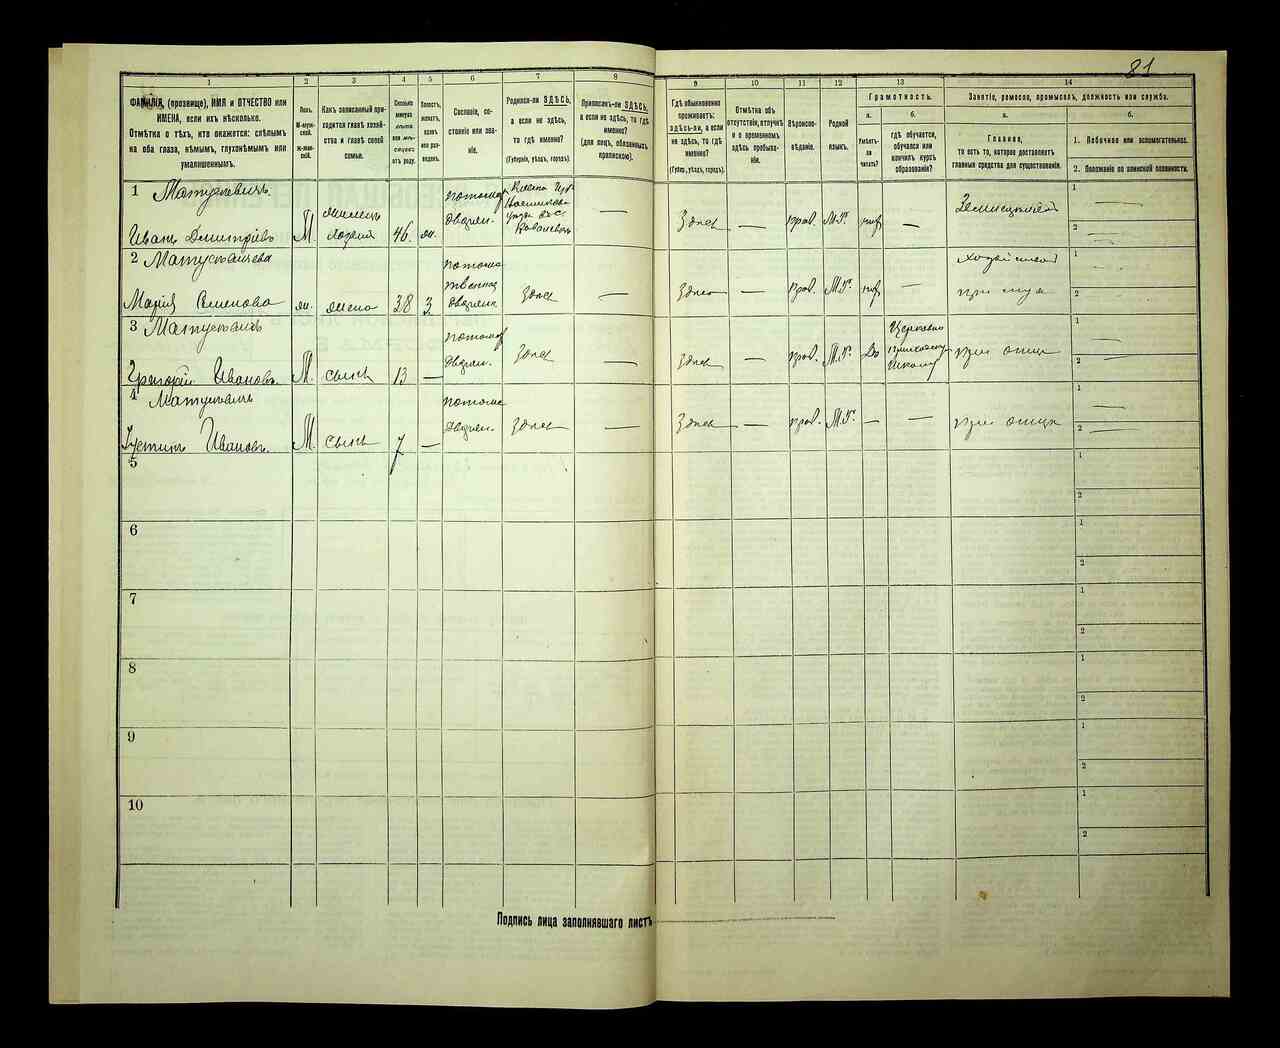 81
1 2 3 4 5 6 7 8 9 10 11 12 13 14
ФАМИЛІЯ, (прозвище), ИМЯ и ОТЧЕСТВО или
ИМЕНА, если ихъ нѣсколько.
Отмѣтка о тѣхъ, кто окажется: слѣпымъ
на оба глаза, нѣмымъ, глухонѣмымъ или
умалишеннымъ.
Полъ.
М-муж-
ской.
Ж-жен-
скій.
Какъ записанный при-
ходится главѣ хозяй-
ства и главѣ своей
семьи.
Сколько
минуло
лѣтъ
или мѣ-
сяцевъ
отъ роду.
Холостъ,
женатъ,
вдовъ
или раз-
веденъ.
Сословіе, со-
стояніе или зва-
ніе.
Родился-ли ЗДѢСЬ,
а если не здѣсь,
то гдѣ именно?
(Губернія, уѣздъ, городъ).
Приписанъ-ли ЗДѢСЬ,
а если не здѣсь, то гдѣ
именно?
(для лицъ, обязанныхъ
припискою).
Гдѣ обыкновенно
проживаетъ:
здѣсь-ли, а если
не здѣсь, то гдѣ
именно?
(Губер., уѣздъ, городъ).
Отмѣтка объ
отсутствіи, отлучкѣ
и о временномъ
здѣсь пребыва-
ніи.
Вѣроиспо-
вѣданіе.
Родной
языкъ.
Грамотность.
а.
Умѣетъ-
ли
читать?
б.
гдѣ обучается,
обучался или
кончилъ курсъ
образованія?
Занятіе, ремесло, промыселъ, должность или служба.
а.
Главное,
то есть то, которое доставляетъ
главныя средства для существованія.
б.
1. Побочное или вспомогательное.
2. Положеніе по воинской повинности.
1 Матусевичъ
Иванъ Дмитріевъ М. 46. ж. дворян. — Здѣсь — прав. М.Р. —
1
2
2
Марія Семенова ж. жена 38 3. потомственная дворянка Здѣсь — Здѣсь — прав. М.Р. — при мужѣ
1
2
3
Григорій Ивановъ. М. сынъ 13 — дворян. Здѣсь — Здѣсь — прав. М.Р. Да Школу при отцѣ
1
2
4
Іустинъ Ивановъ. М. сынъ 7 — дворян. Здѣсь — Здѣсь — прав. М.Р. — — при отцѣ
1
2
5
1
2
6
1
2
7
1
2
8
1
2
9
1
2
10
1
2
Подпись лица заполнявшаго листъ